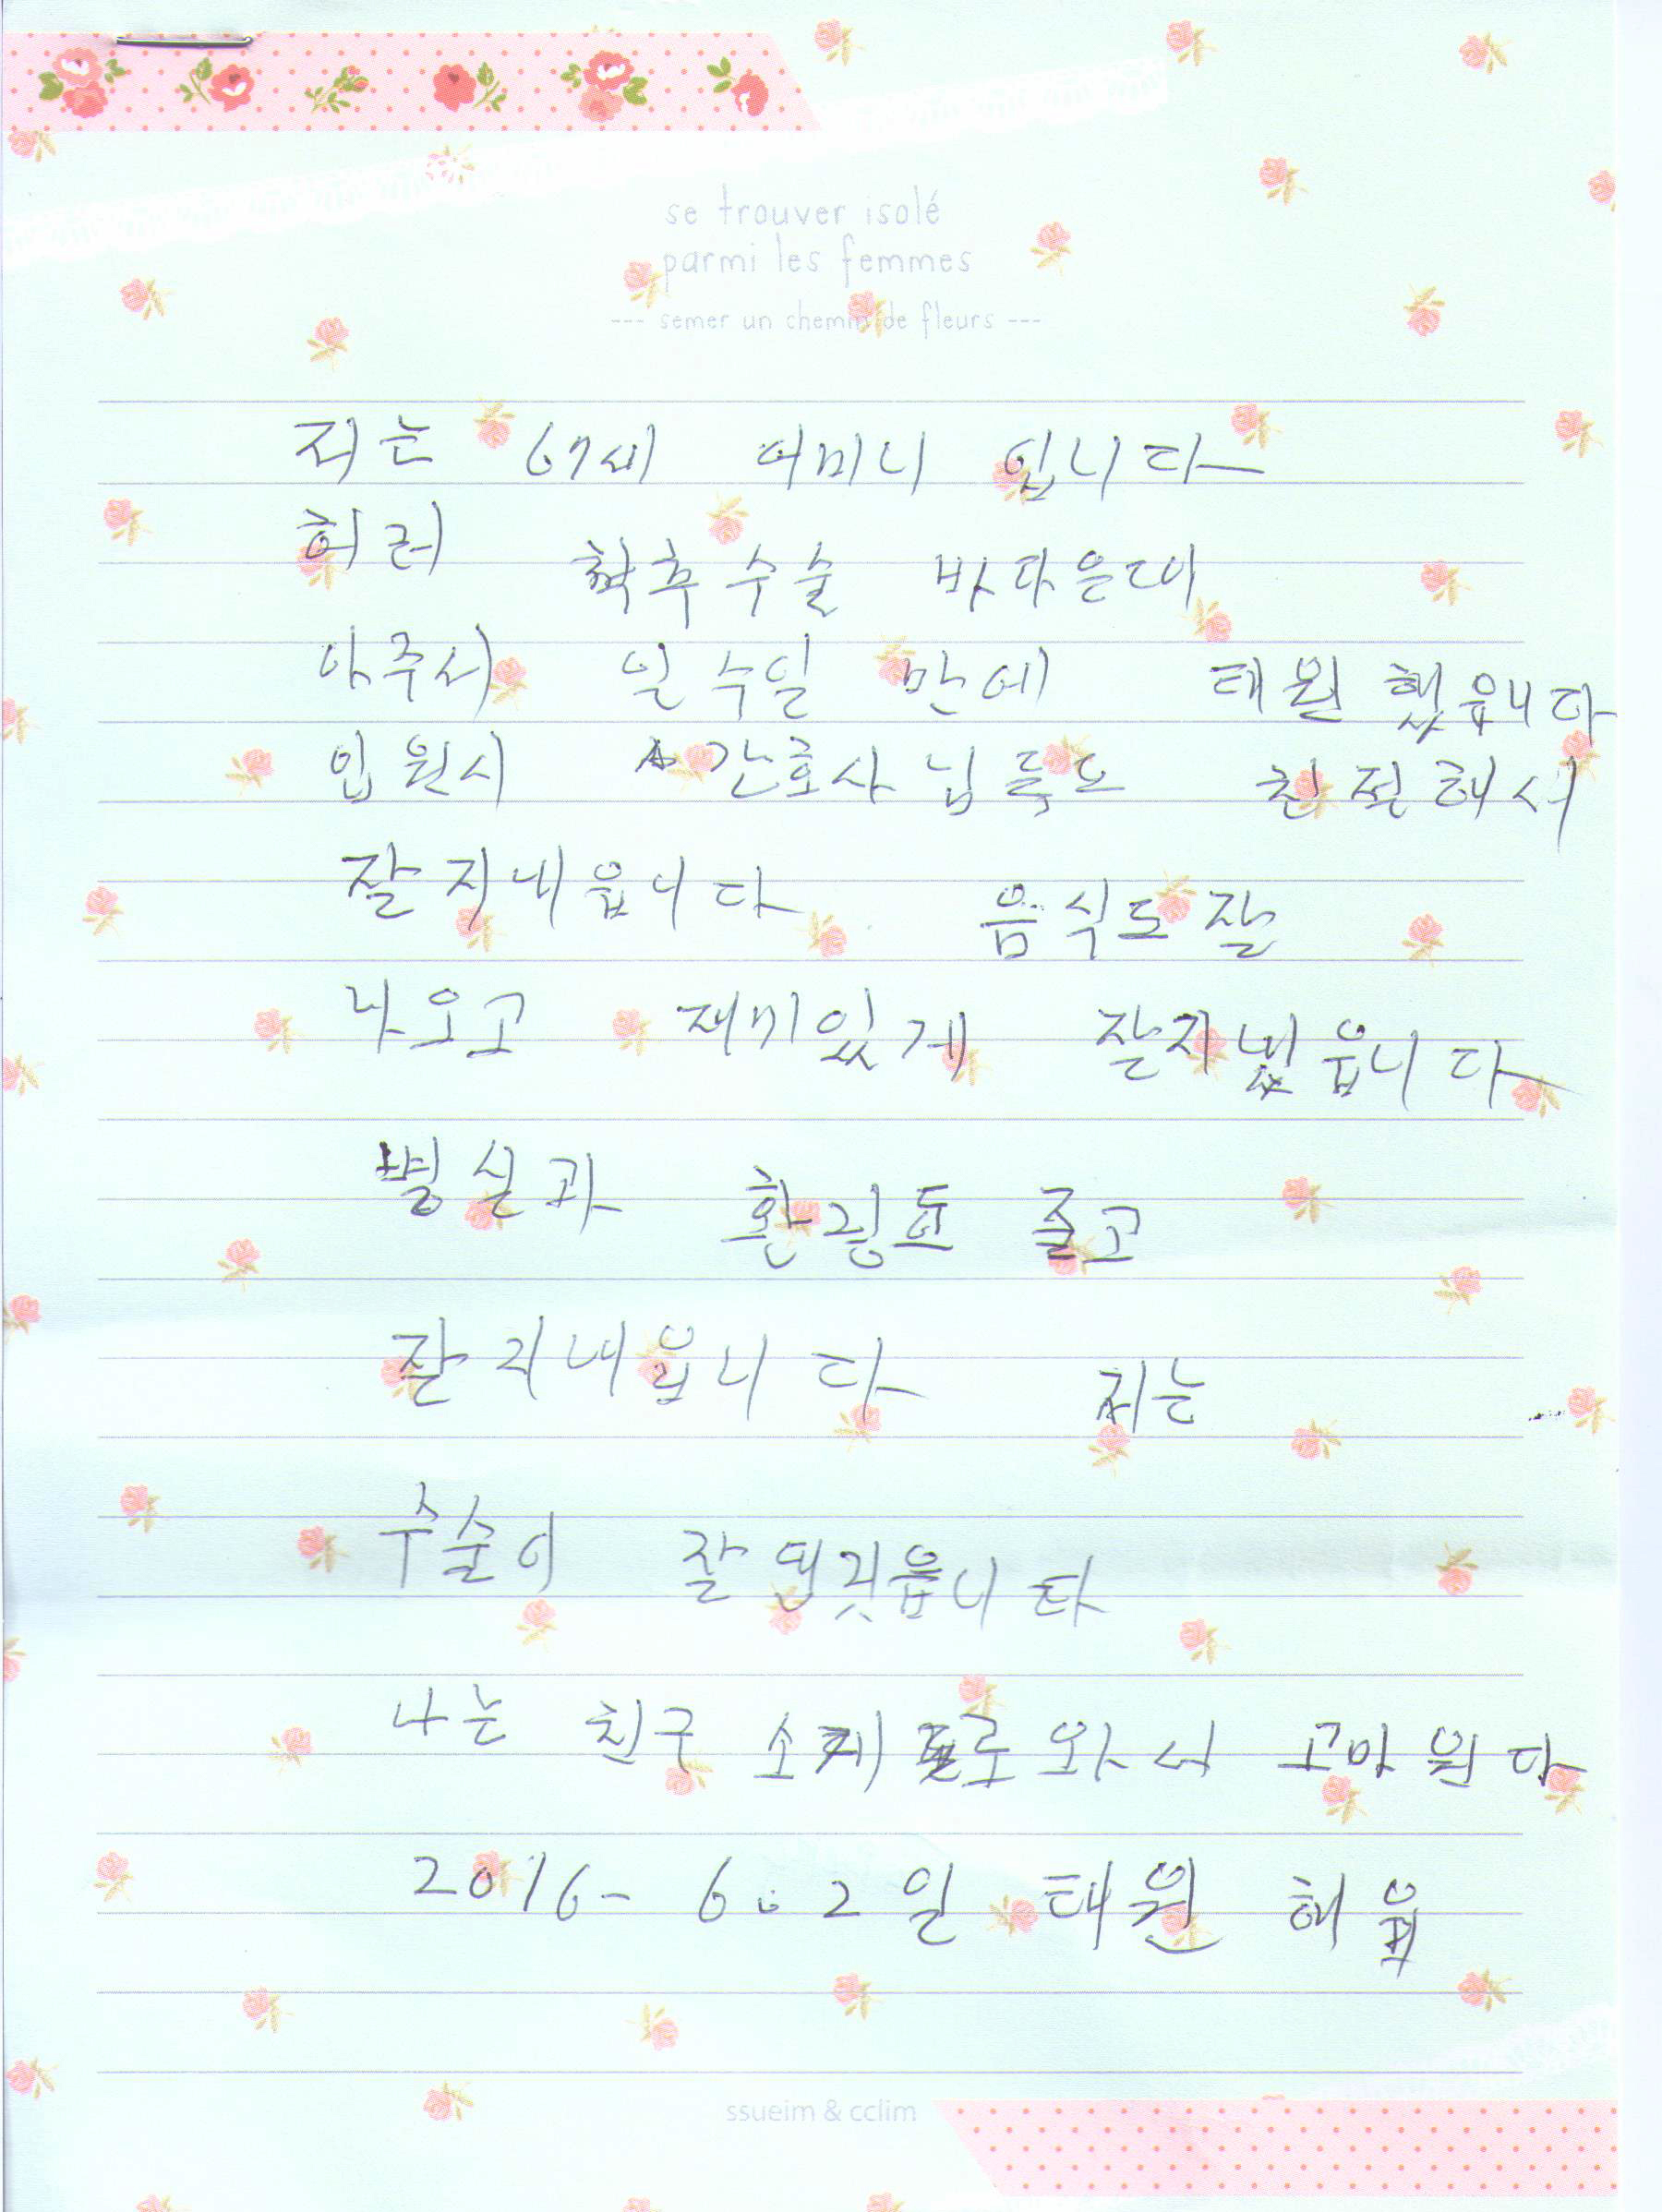 se trouver isolé
parmi les femmes
--- semer un chemin de fleurs ---
저는 67세 어머니 입니다
허러 척추수술 바다은대
아주서 일수일 만에 태원했읍니다
입원시 간호사님들도 친절해서
잘지내읍니다 음식도잘
나오고 재미있게 잘지냈읍니다
병실과 환경도 졸고
잘지내읍니다 저는
수술이 잘됀깃읍니다
나는 친구 소개로와서 고마원다
2016- 6.2일 태원 해읍
ssueim & cclim